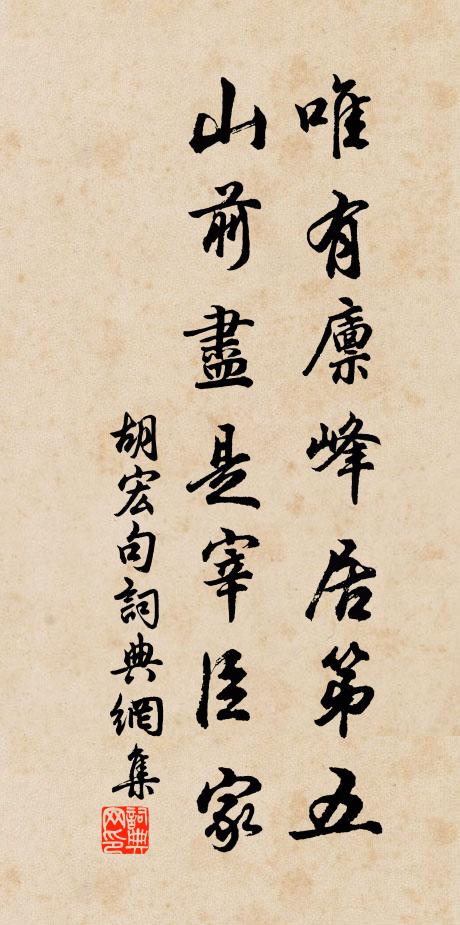 唯有廪峰居第五
山前盡是宰臣家
胡宏句詞典網集
詞典网印